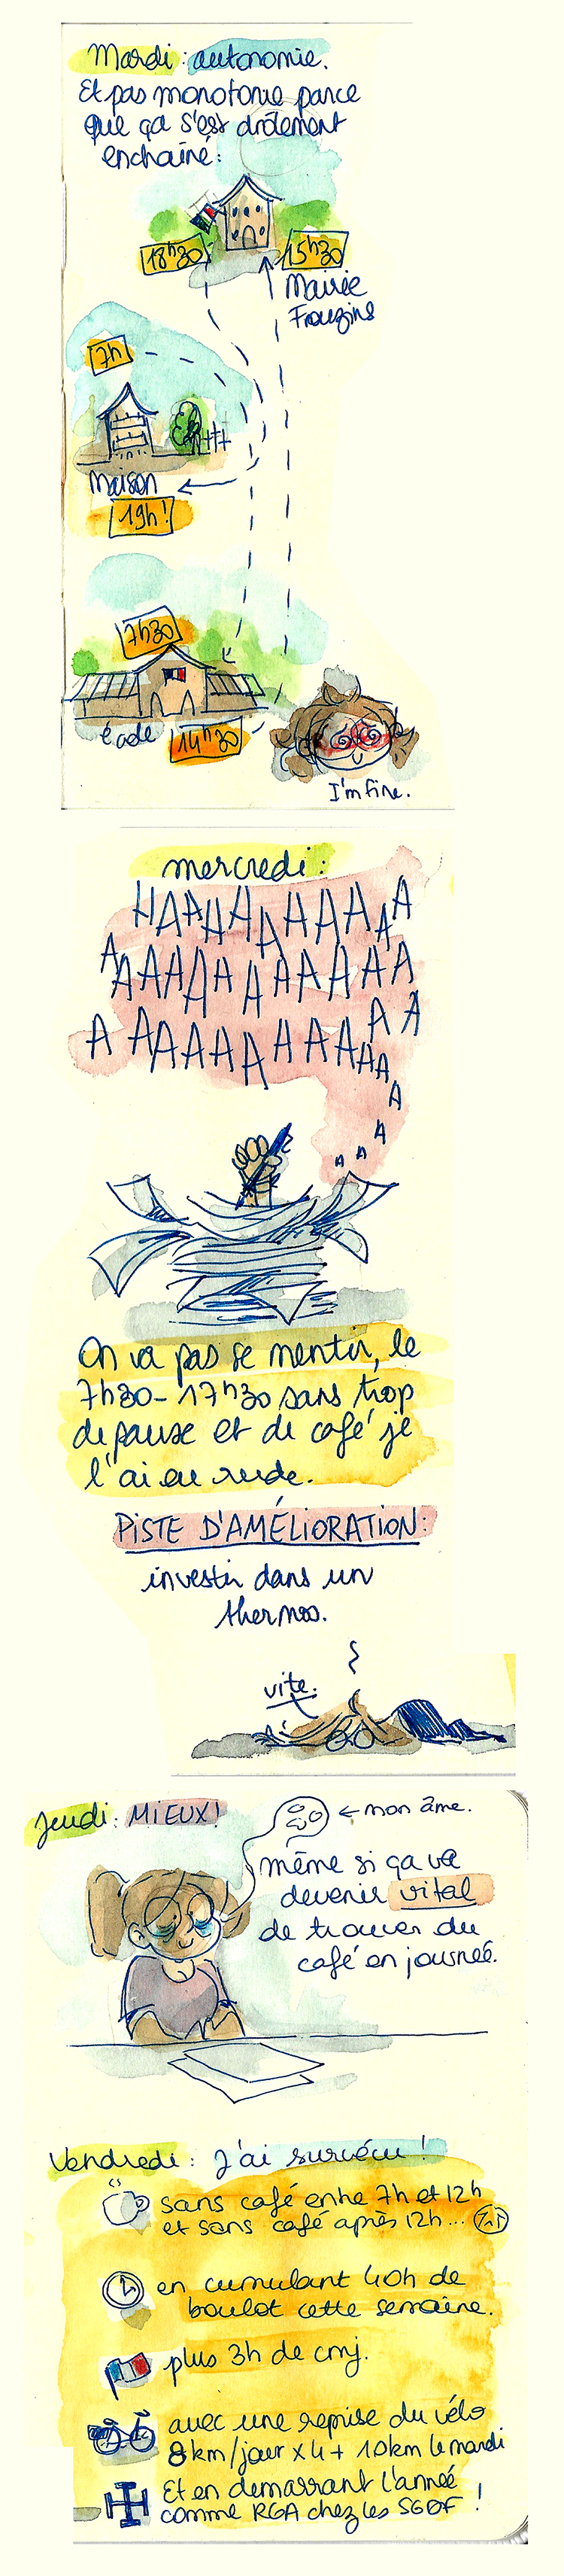 Mardi : autonomie.
Et pas monotonie parce
que ça s'est drôlement
enchaîné :
18h30
15h30
Mairie
Frouzins
7h
Maison
19h!
7h30
école
14h30
I'm fine.
mercredi :
HAAHAAHAAAA
AAAAAAHAAAAAAA
A AAAAAAHAAAAAAAA
A
A
A A
On va pas se mentir, le
7h30-17h30 sans trop
de pause et de café je
l'ai eu rude.
PISTE D'AMÉLIORATION :
investir dans un
thermos.
vite.
Jeudi : MIEUX!
← mon âme.
même si ça va
devenir vital
de trouver du
café en journée.
Vendredi : J'ai survécu !
sans café entre 7h et 12h
et sans café après 12h...
en cumulant 40h de
boulot cette semaine.
plus 3h de cmj.
avec une reprise du vélo
8km/jour x4 + 10km le mardi
Et en demarrant l'année
comme RGA chez les SGDF !